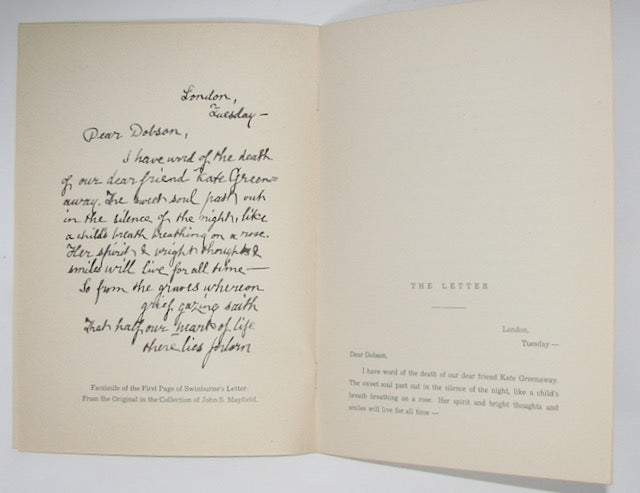 London,
Tuesday —
Dear Dobson,
I have word of the death
of our dear friend Kate Green=
away. The sweet soul past out
in the silence of the night, like
a child's breath breathing on a rose.
Her spirit & bright thoughts &
smiles will live for all time —
So from the graves whereon
grief gazing saith
That half our heart of life
there lies forlorn
Facsimile of the First Page of Swinburne's Letter.
From the Original in the Collection of John S. Mayfield.
THE LETTER
London,
Tuesday —
Dear Dobson,
I have word of the death of our dear friend Kate Greenaway.
The sweet soul past out in the silence of the night, like a child's
breath breathing on a rose. Her spirit and bright thoughts and
smiles will live for all time —